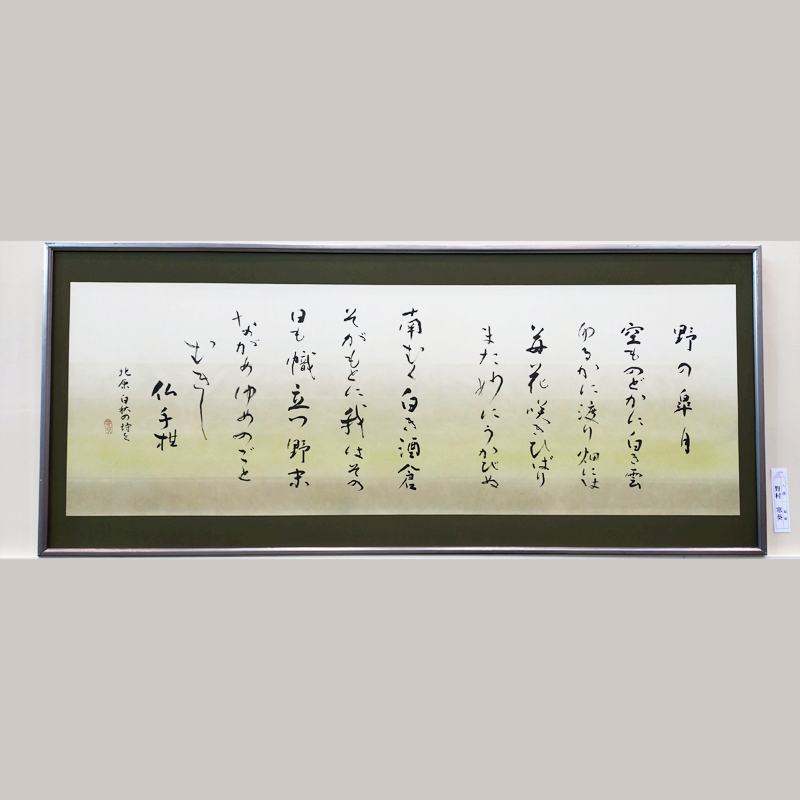 野の皐月
空ものどかに白き雲
のるかに渡り畑には
苺花咲きひばり
また妙にうかびぬ
南むく白き酒倉
そがもとに我はその
日も幟立つ野末
ながめゆめのごと
むきし
仏手柑
北原白秋の詩を
野村